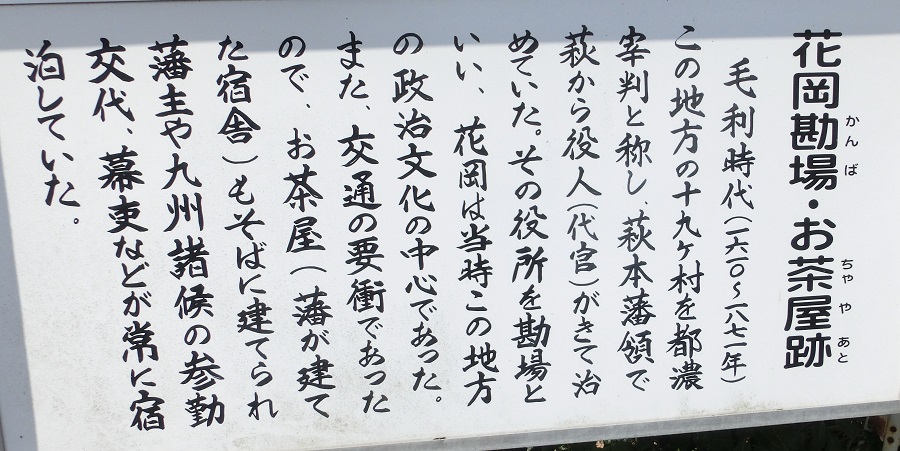 花岡勘場・お茶屋跡
かんば
ちゃや
あと
毛利時代(一六一〇〜一八七一年)
この地方の十九ヶ村を都濃
宰判と称し、萩本藩領で
萩から役人(代官)がきて治
めていた。その役所を勘場と
いい、花岡は当時この地方
の政治文化の中心であった。
また、交通の要衝であった
ので、お茶屋(藩が建て
た宿舎)もそばに建てられ
藩主や九州諸候の参勤
交代、幕吏などが常に宿
泊していた。